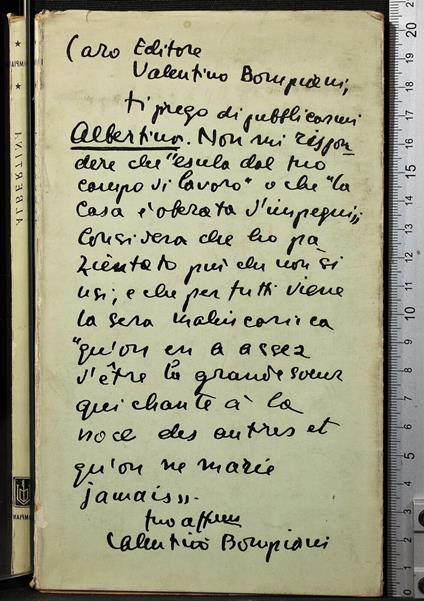 Caro Editore
Valentino Bompiani,
ti prego di pubblicarmi
Albertina. Non mi rispon
dere che "esula dal tuo
campo di lavoro" o che "la
Casa è oberata d'impegni"
Considera che ho pa
zientato più che non si
usi, e che per tutti viene
la sera malinconica
"qu'on en a assez
d'être la grande soeur
qui chante à la
noce des autres et
qu'on ne marie
jamais".
tuo affmo
Valentino Bompiani
ALBERTINA
0 1 2 3 4 5 6 7 8 9 10 11 12 13 14 15 16 17 18 19 20